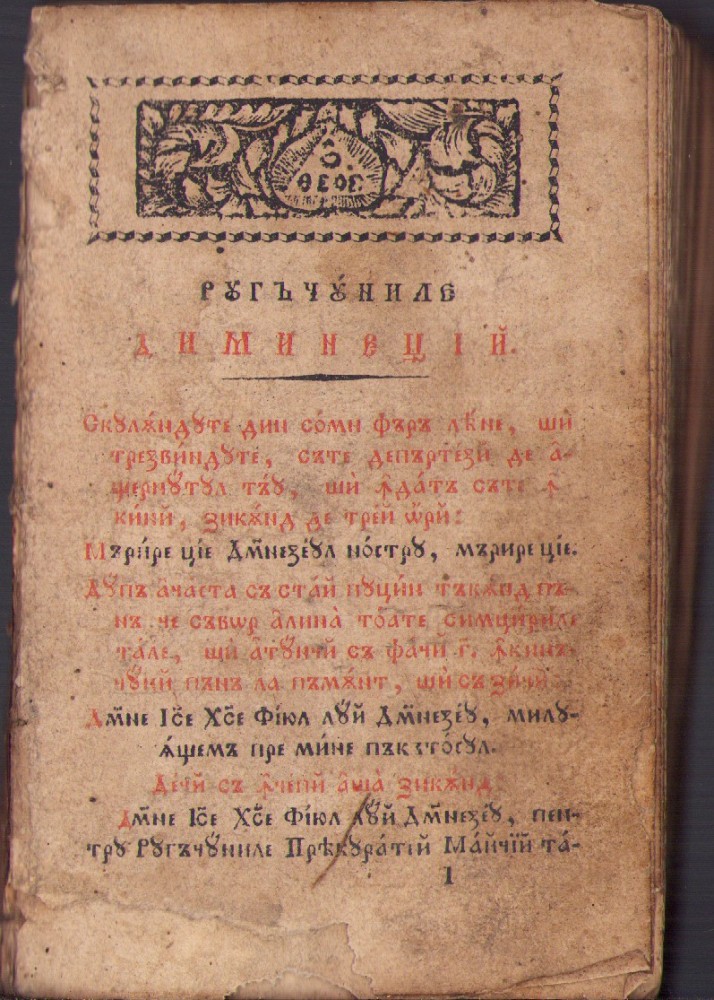 РꙋГЪЧЮ́НИЛЕ
ДИМИНЕЦІЙ.
Скꙋлѫ́ндꙋте дин со́мн фъръ лѣ́не, шѝ
трезви́ндꙋте, съте депъртези де а҆-
щернꙋ́тꙋл тъ́ꙋ, шѝ ꙟ҆да́тъ съте ꙟ҆
кинй, зикѫ́нд де трей ѡрй:
Мъри́ре ціе Дм҃незе́ꙋл но́стрꙋ, мърире ціе.
Дꙋпъ а҆ча́ста съ ста́й пꙋци́н тъкѫ́нд пъ-
нъ че съвор а҆лина̀ то́ате симци́риле
та́ле, шѝ а҆тꙋнчй съ фа́чй г҃. ꙟ҆кинъ-
чꙋ́нй пънъ ла пъмѫ́нт, шѝ съ зи́чй
Дм҃не Іс҃е Хс҃е Фі́юл лꙋ́й Дм҃незе́ꙋ, милꙋ-
ѧ́щемъ пре ми́не пъкъто́сꙋл.
Де́чй съ ꙟ҆че́пй а҆ша̀ зикѫ́нд
Дм҃не Іс҃е Хс҃е Фі́юл лꙋ́й Дм҃незе́ꙋ, пен-
трꙋ Рꙋгъчю́ниле Прѣкꙋра́тій Ма́йчій та́-
1